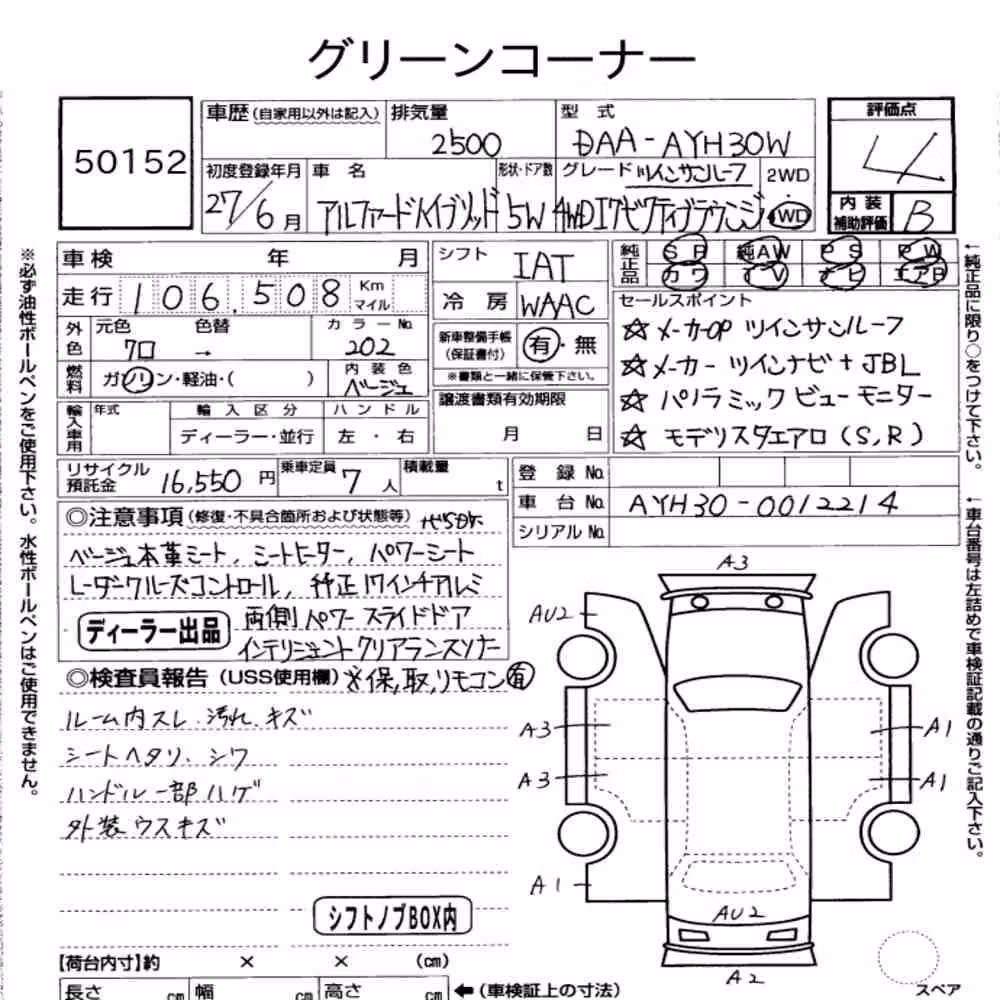 グリーンコーナー
50152
車歴(自家用以外は記入) 排気量 2500 型 式 DAA-AYH30W
評価点 4
初度登録年月 27/6月 車 名 アルファードハイブリッド 形状・ドア数 5W グレード ツインサンルーフ 4WDエグゼクティブラウンジ 2WD 4WD
内装補助評価 B
車検 年 月
走行 106,508 Km マイル
外色 元色 クロ 色替 → カラーNo. 202
燃料 ガソリン・軽油・( ) 内装色 ベージュ
輸入車用 年式 輸入区分 ディーラー・並行 ハンドル 左・右
シフト IAT
冷房 WAAC
新車整備手帳(保証書付) 有・無
※書類と一緒に保管下さい。
譲渡書類有効期限
月 日
純正品 SR 純AW PS PW
カワ TV ナビ エアB
セールスポイント
☆メーカOP ツインサンルーフ
☆メーカー ツインナビ+JBL
☆パノラミック ビューモニター
☆モデリスタエアロ(S,R)
リサイクル預託金 16,550円 乗車定員 7人 積載量 t
登録No.
車台No. AYH30-0012214
シリアルNo.
◎注意事項(修復・不具合箇所および状態等)
ベージュ本革シート, シートヒーター, パワーシート
レーダークルーズコントロール, 純正17インチアルミ
ディーラー出品
両側パワースライドドア
インテリジェントクリアランスソナー
◎検査員報告(USS使用欄) ※保,取,リモコン有
ルーム内スレ.汚れ.キズ
シートヘタリ.シワ
ハンドル一部ハゲ
外装ウスキズ
シフトノブBOX内
【荷台内寸】約 × × (cm)
長さ cm 幅 cm 高さ cm ←(車検証上の寸法)
A3
AU2
A3
A1
A3
A1
A1
AU2
A2
スペア
※必ず油性ボールペンをご使用下さい。水性ボールペンはご使用できません。
←純正品に限り○をつけて下さい。
←車台番号は左詰めで車検証記載の通りご記入下さい。